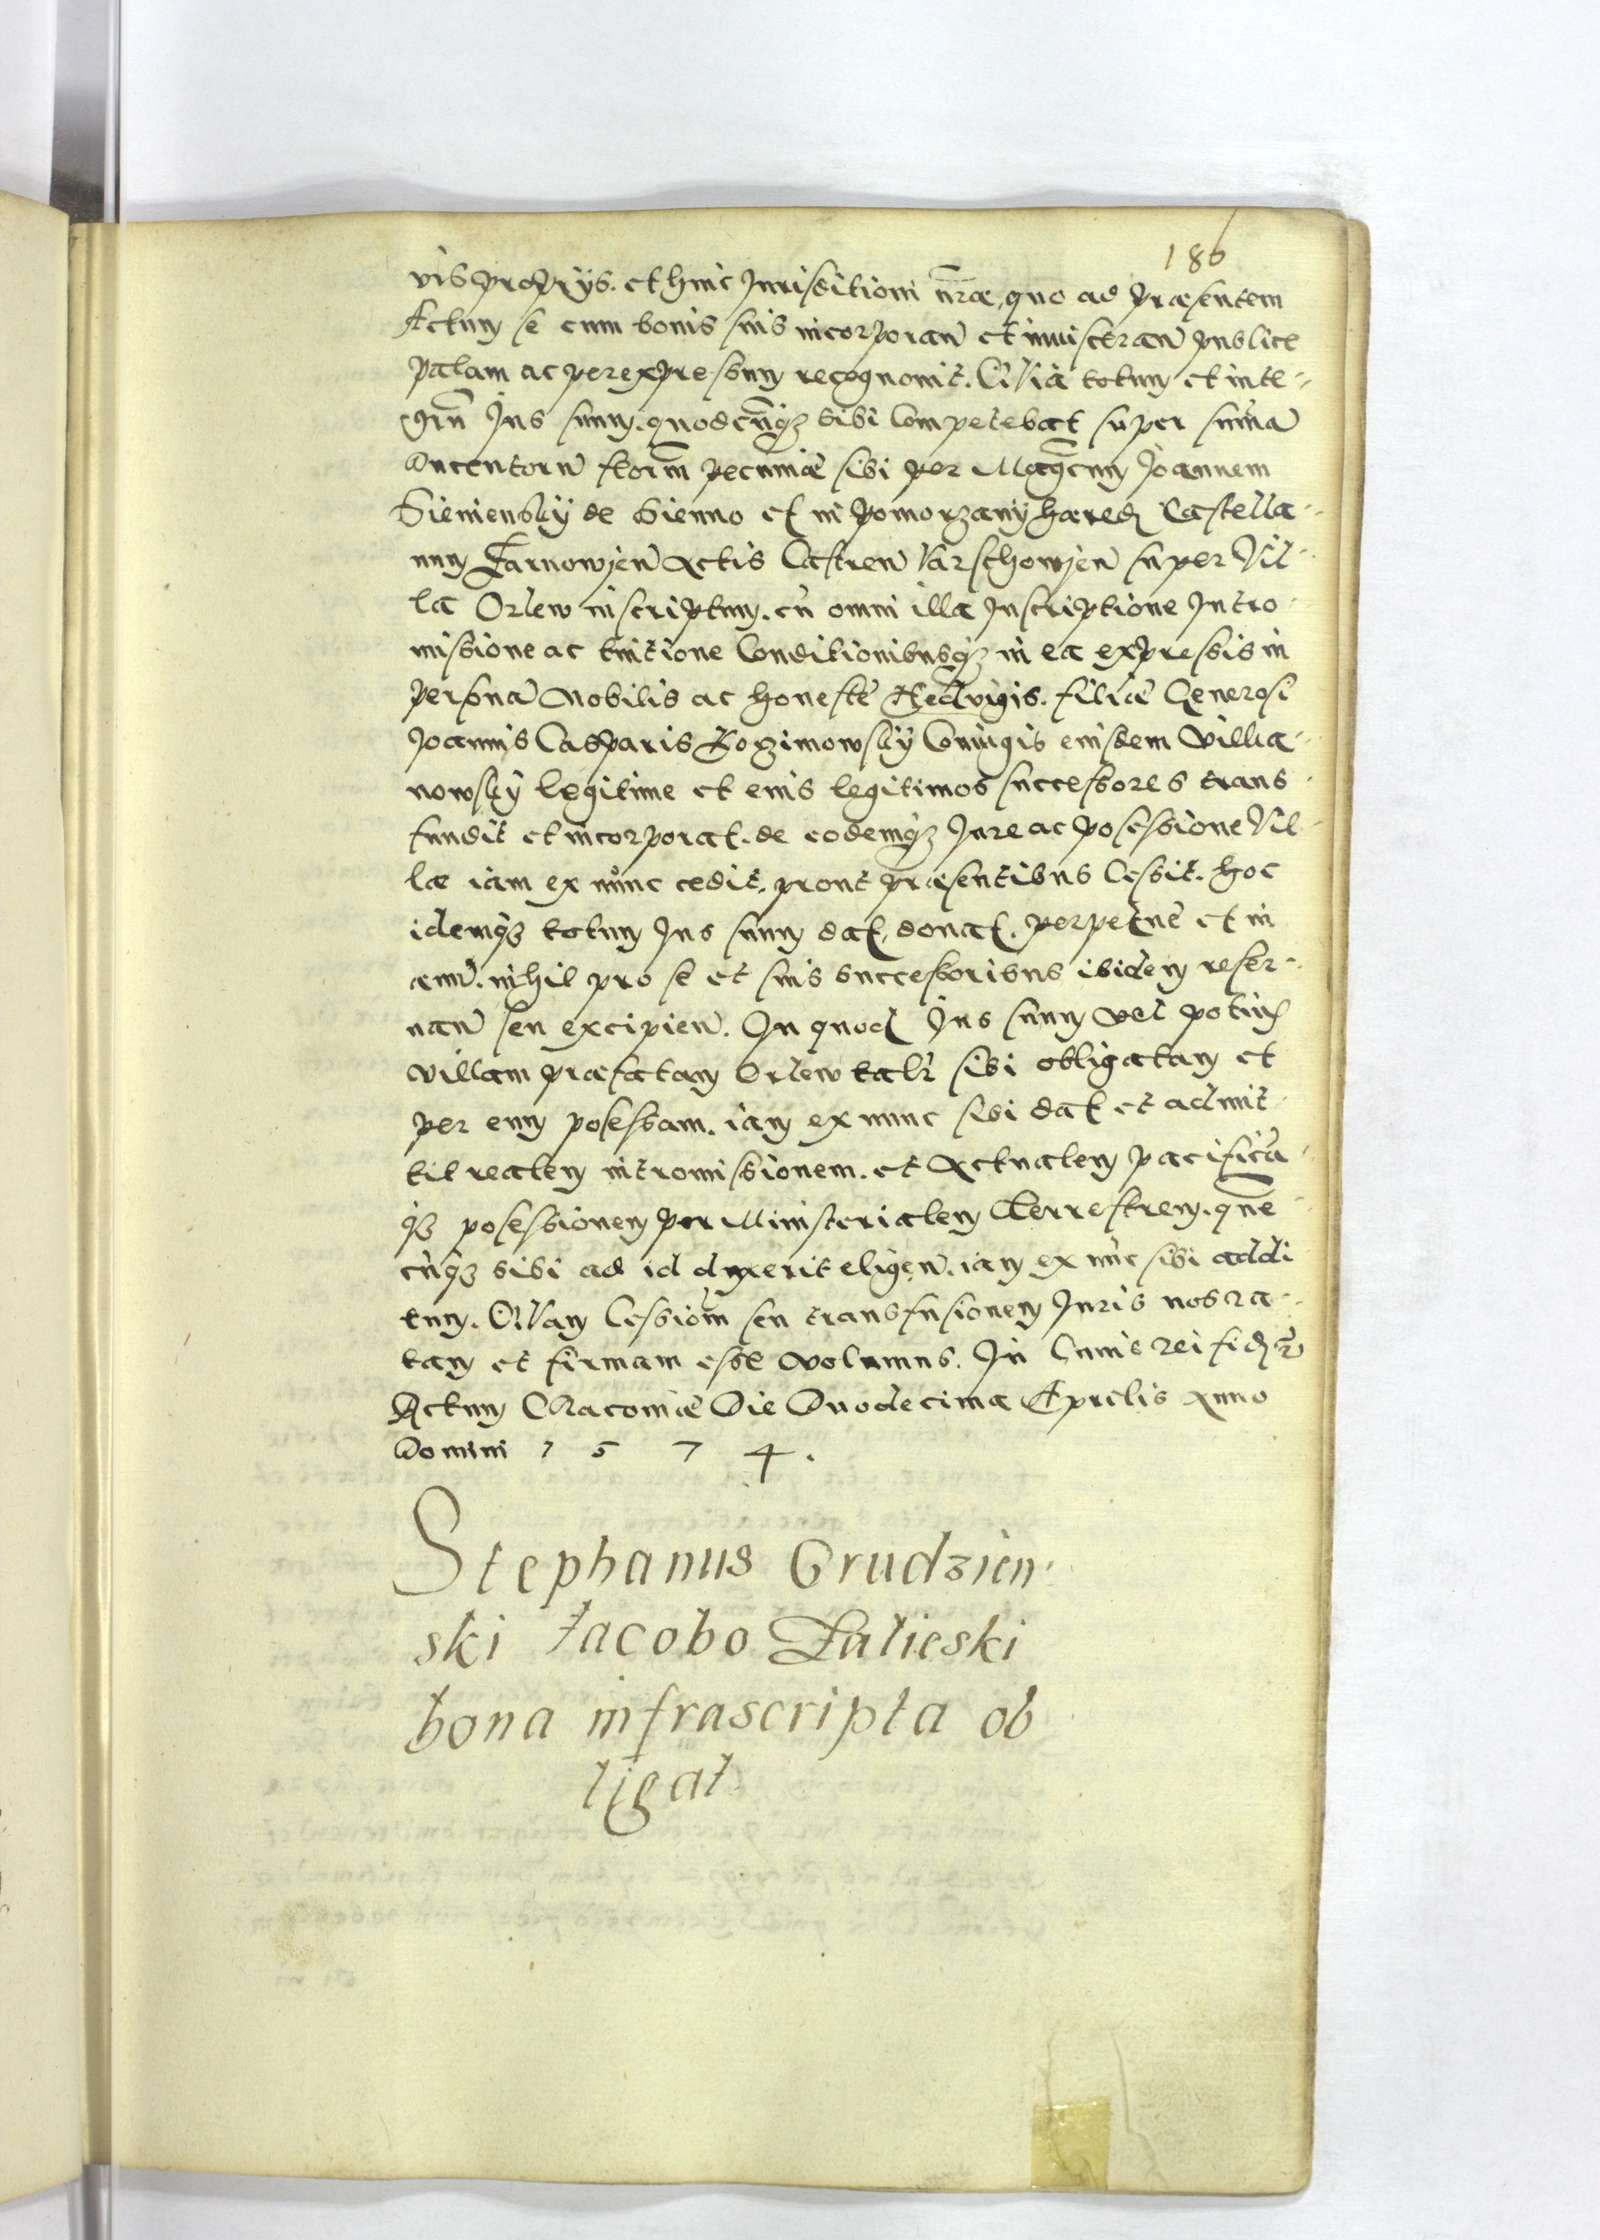 186
uis proprÿs. et huic Jurisditioni nr̃ae, quo ad præsentem
Actum se cum bonis suis incorporan̄ et inuisceran̄ publice
palam ac per expressum recognouit. Quia totum et inte-
grũ Jus suum. quodcũq3 sibi Competebat super summa
Ducentorũ florim̃ pecuniæ sibi per Mag̃cum Joannem
Sieniensky de Sienno et in Pomorzanÿ hæred̃ Castella-
num Zarnowien̄ Actis Castren̄ Varschowien̄ super Vil-
la Orlew inscriptum. cũ omni illa Inscriptione Intro-
missione ac tuitione Conditionibusq3 in ea expressis in
persona Nobilis ac honestæ Hedvigis. filiæ Generosi
Joannis Casparis Rozimowskÿ Coniugis eiusdem Villia-
nowskÿ legitime et eius legitimos successores trans-
fundit et incorporat. de eodemq3 Jure ac posessione Vil-
læ iam ex nunc cedit, prout præsentibus Cessit. hoc
idemq3 totum Jus suum dat, donat. perpetue et in
æuũ. nihil pro se et suis successoribus ibidem reser-
uan̄ seu excipien̄. In quod Jus suum vel potius
villam præfatam Orlew talr̃ sibi obligatam et
per eum posessam. iam ex nunc sibi dat et admit-
tit realem intromissionem. et Actualem pacificã
q3 posessionem per Ministerialem Terrestrem. quẽ
cũq3 sibi ad id duxerit eligen̄. iam ex nũc sibi addi
tum. Quam Cessiom̃ seu transfusionem Juris nos ra-
tam et firmam esse volumus. In Cuius rei fid̃
Actum Cracouiæ Die Duodecima Aprelis Anno
Domini 1 5 7 4 .
Stephanus Grudzien-
ski Iacobo Zalieski
bona infrascripta ob
ligat